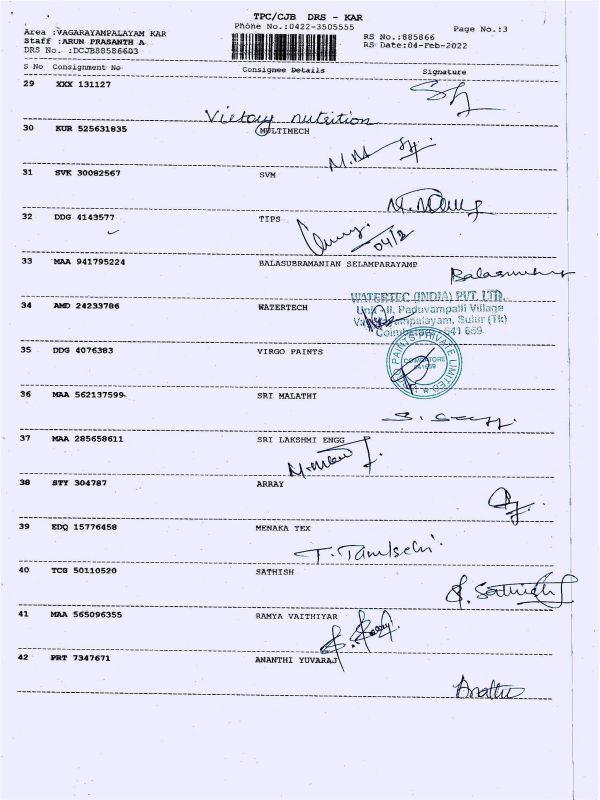 TPC/CJB DRS - KAR
Phone No.:0422-3505555
Page No.:3
Area :VAGARAYAMPALAYAM KAR
Staff :ARUN PRASANTH A
DRS No. :DCJB88586603
RS No.:885866
RS Date:04-Feb-2022
S No Consignment No Consignee Details Signature
29 XXX 131127
Victory nutrition
30 KUR 525631835 MULTIMECH
31 SVK 30082567 SVM
32 DDG 4143577 TIPS
04/2
33 MAA 941795224 BALASUBRAMANIAN SELAMPARAYAMP
34 AMD 24233786 WATERTECH
WATERTEC (INDIA) PVT. LTD.
Unit-II, Paduvampalli Village
Sulur (Tk)
Coimbatore 641 659
35 DDG 4076383 VIRGO PAINTS
PAINTS PRIVATE LIMITED
COIMBATORE
641659
36 MAA 562137599 SRI MALATHI
37 MAA 285658611 SRI LAKSHMI ENGG
38 STY 304787 ARRAY
39 EDQ 15776458 MENAKA TEX
T. Tamilselvi
40 TCG 50110520 SATHISH
S. Sathish
41 MAA 565096355 RAMYA VAITHIYAR
42 PRT 7347671 ANANTHI YUVARAJ